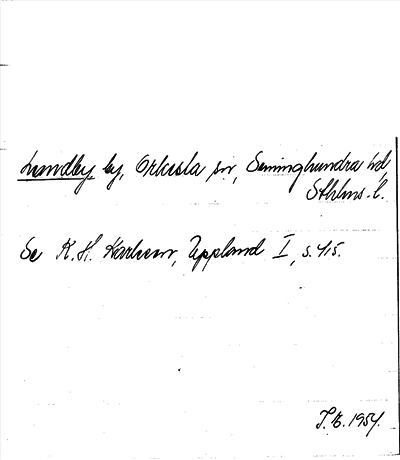 Lundby, by, Orkesta sn, Seminghundra hd,
Sthlms. l.
Se K. H. Karlsson, Uppland I, s. 415.
1954.